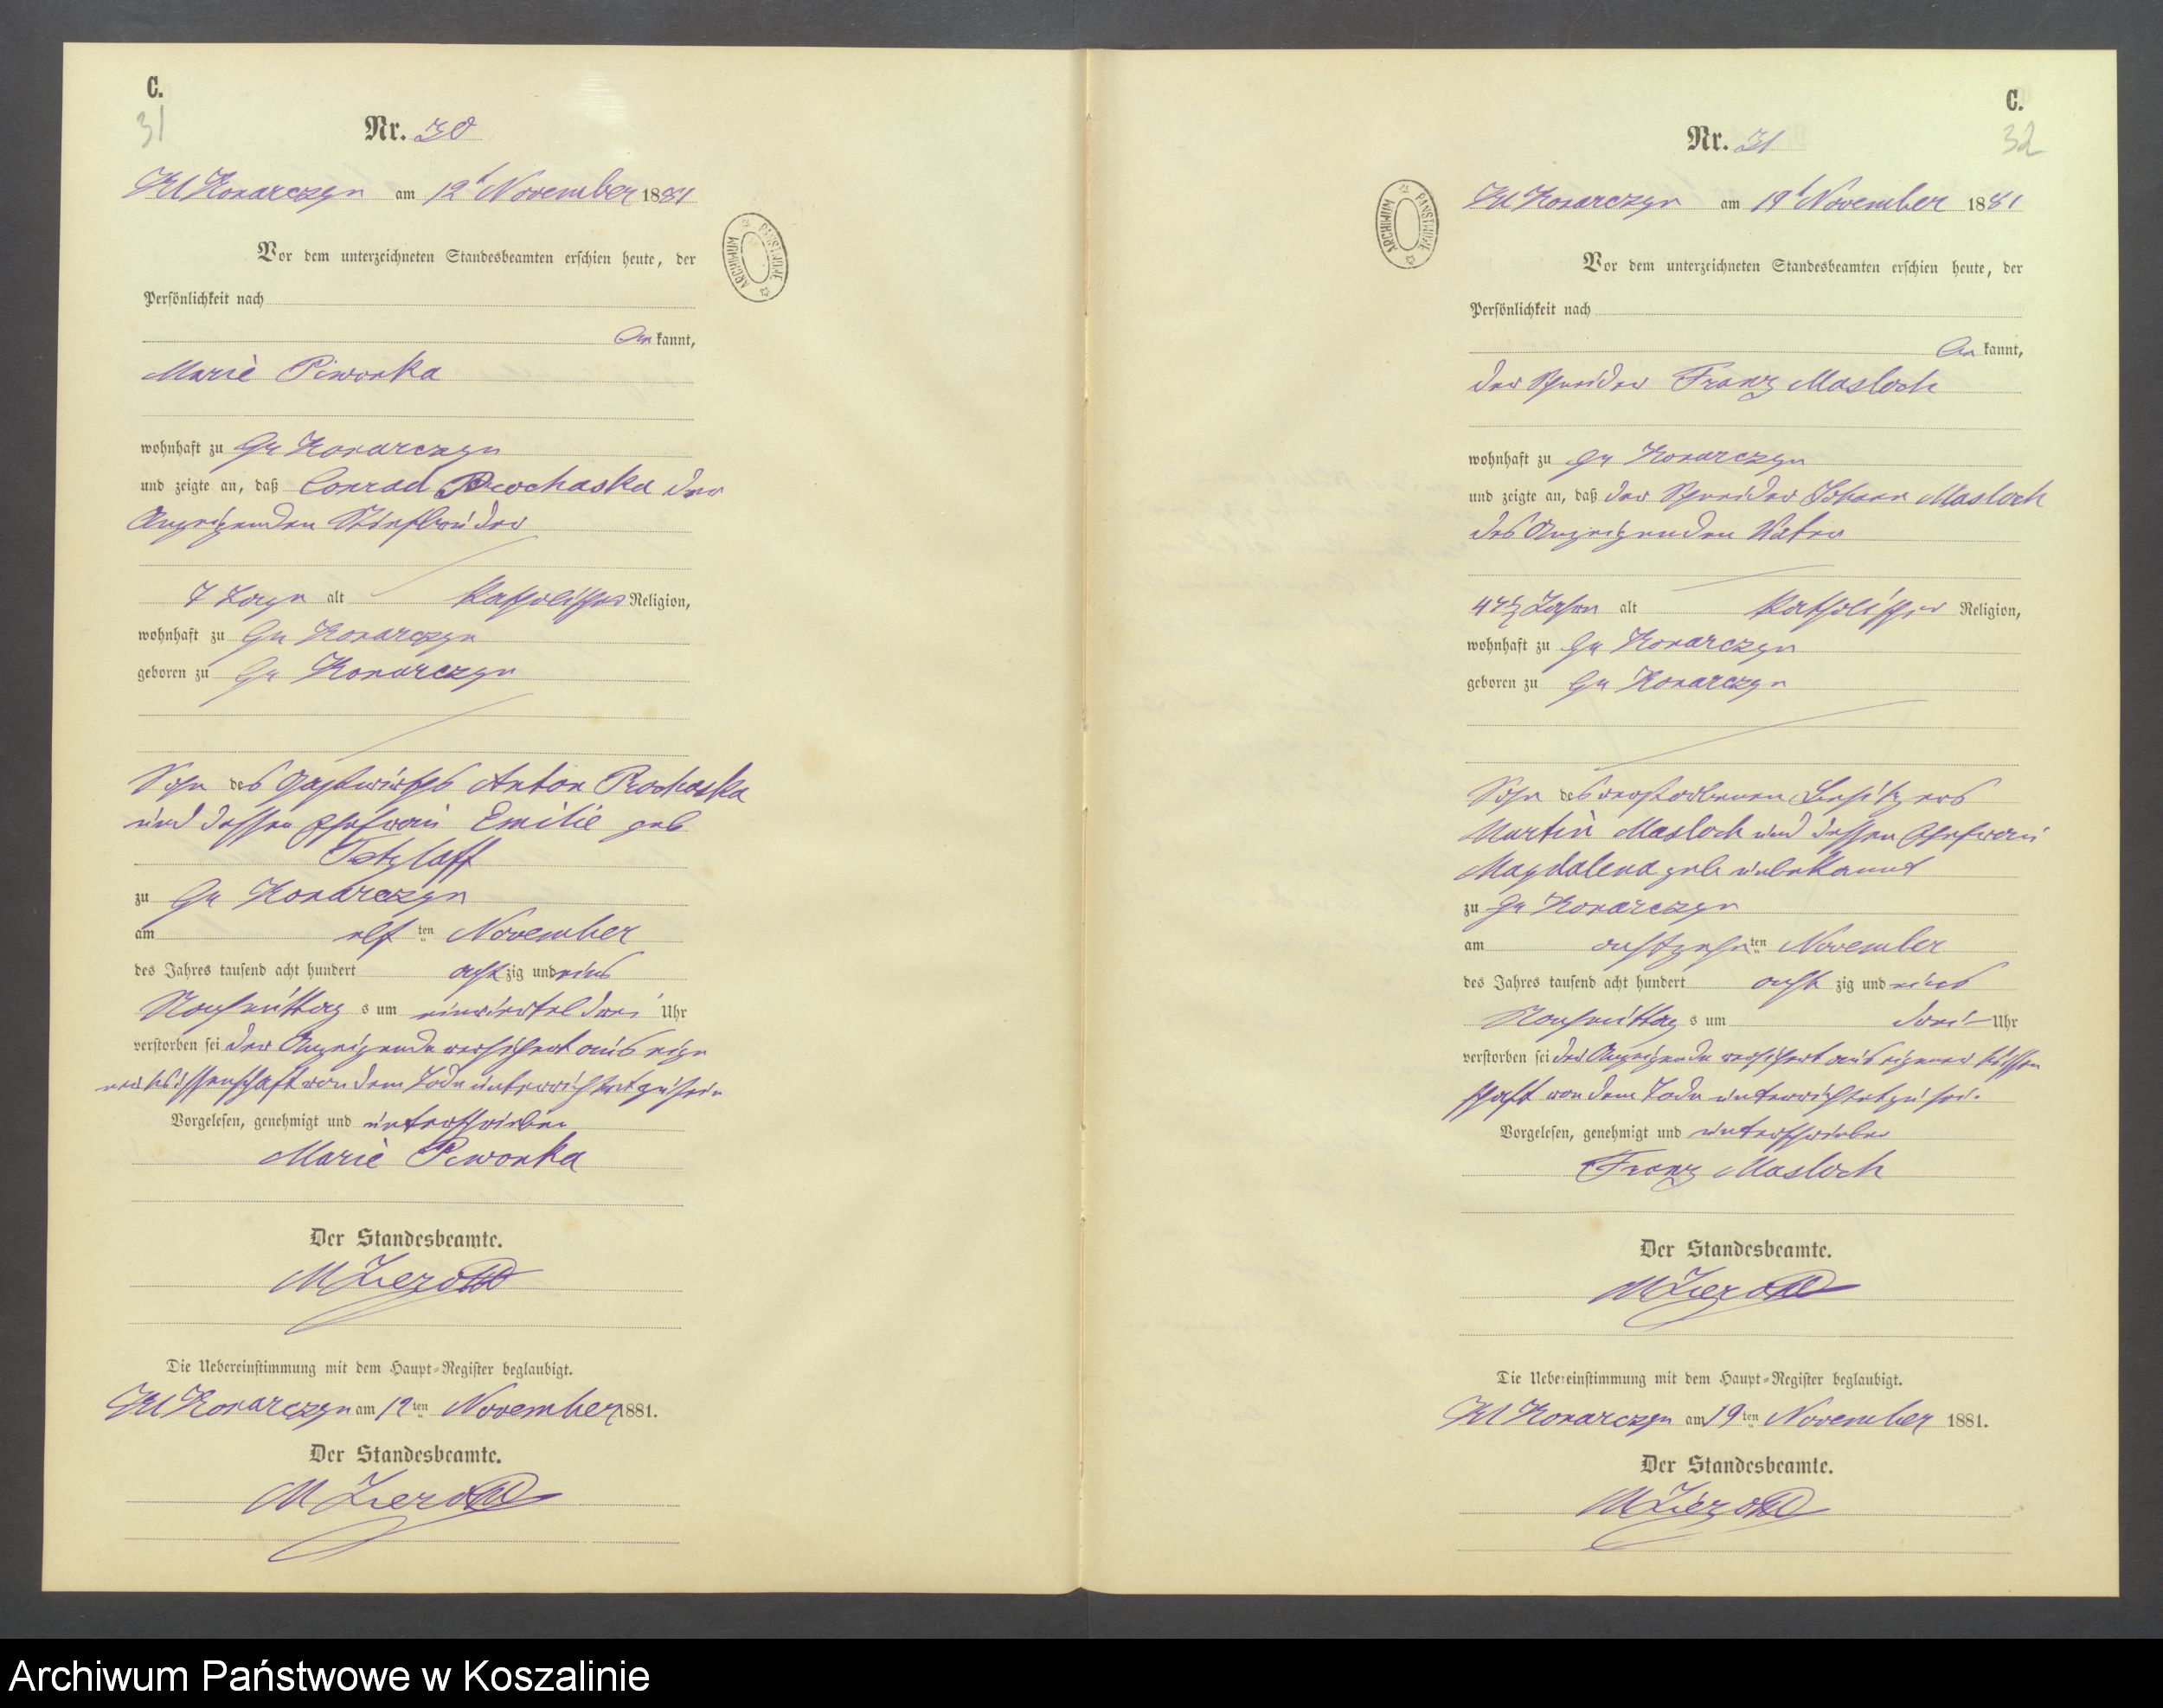 C.
31
Nr. 30
Kl Konarczyn am 12t November 1881
Vor dem unterzeichneten Standesbeamten erschien heute, der
Persönlichkeit nach
be kannt,
Marie Piwonka
wohnhaft zu Gr Konarczyn
und zeigte an, daß Conrad Prochaska der
Anzeigenden Stiefbruder
7 Tage alt katholischer Religion,
wohnhaft zu Gr Konarczyn
geboren zu Gr Konarczyn
Sohn des Gastwirths Anton Prochaska
und dessen Ehefrau Emilie geb
Tetzlaff
zu Gr Konarczyn
am elf ten November
des Jahres tausend acht hundert acht zig und eins
Nachmittag s um einviertel drei Uhr
verstorben sei der Anzeigende versichert aus eige
ner Wissenschaft von dem Tode unterrichtet zu sein
Vorgelesen, genehmigt und unterschrieben
Marie Piwonka
Der Standesbeamte.
Die Uebereinstimmung mit dem Haupt-Register beglaubigt.
Kl Konarczyn am 12 ten November 1881.
Der Standesbeamte.
ARCHIWUM PAŃSTWOWE
C.
32
Nr. 31
Kl Konarczyn am 19t November 1881
Vor dem unterzeichneten Standesbeamten erschien heute, der
Persönlichkeit nach
be kannt,
der Schneider Franz Masloch
wohnhaft zu Gr Konarczyn
und zeigte an, daß der Schneider Johann Masloch
des Anzeigenden Vater
47½ Jahre alt katholischer Religion,
wohnhaft zu Gr Konarczyn
geboren zu Gr Konarczyn
Sohn des verstorbenen Besitzers
Martin Masloch und dessen Ehefrau
Magdalena geb unbekannt
zu Gr Konarczyn
am achtzehn ten November
des Jahres tausend acht hundert acht zig und eins
Nachmittag s um drei Uhr
verstorben sei der Anzeigende versichert aus eigener Wissen
schaft von dem Tode unterrichtet zu sei.
Vorgelesen, genehmigt und unterschrieben
Franz Masloch
Der Standesbeamte.
Die Uebereinstimmung mit dem Haupt-Register beglaubigt.
Kl Konarczyn am 19 ten November 1881.
Der Standesbeamte.
ARCHIWUM PAŃSTWOWE
Archiwum Państwowe w Koszalinie